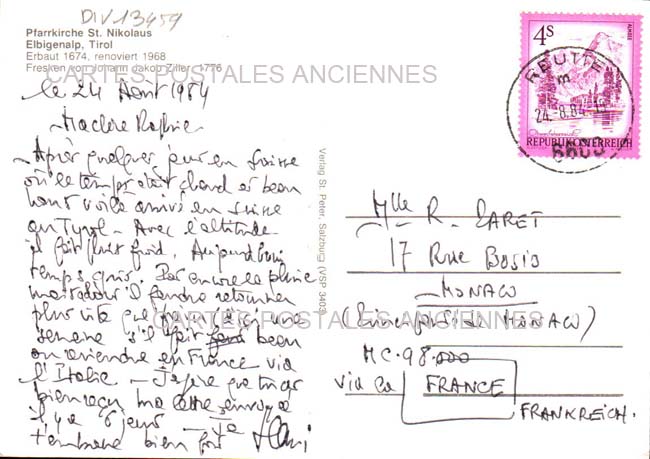 DIV13459
Pfarrkirche St. Nikolaus
Elbigenalp, Tirol
Erbaut 1674, renoviert 1968
Fresken von Johann Jakob Ziller, 1776
CARTES POSTALES ANCIENNES
le 24 Août 1984
Ma chère
Après quelques jours en Suisse
où le temps était chaud et beau
nous voilà arrivés en Suisse
au Tyrol - Avec l'altitude
il fait plus froid. Aujourd'hui
temps gris. Pas encore la pluie
mais alors il faudra retourner
plus vite que
semaine s'il fait beau
on reviendra en France via
l'Italie - J'espère que tu as
bien reçu ma lettre envoyée
il y a 6 jours - Je
t'embrasse bien fort
Verlag St. Peter, Salzburg (VSP 3403)
4S
ALMSEE
REPUBLIK ÖSTERREICH
REUTTE
24.-8.84
6600
Mlle R. CARET
17 Rue Bosio
MONACO
(Principauté de MONACO)
CARTES POSTALES ANCIENNES
MC-98.000
via la FRANCE
FRANKREICH.